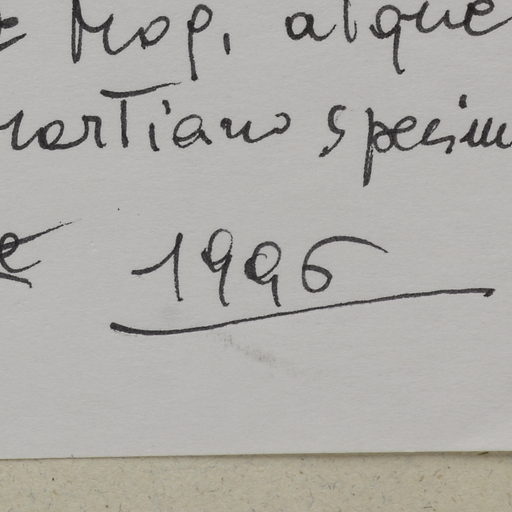 Prop. atque
martiano specim
e 1996